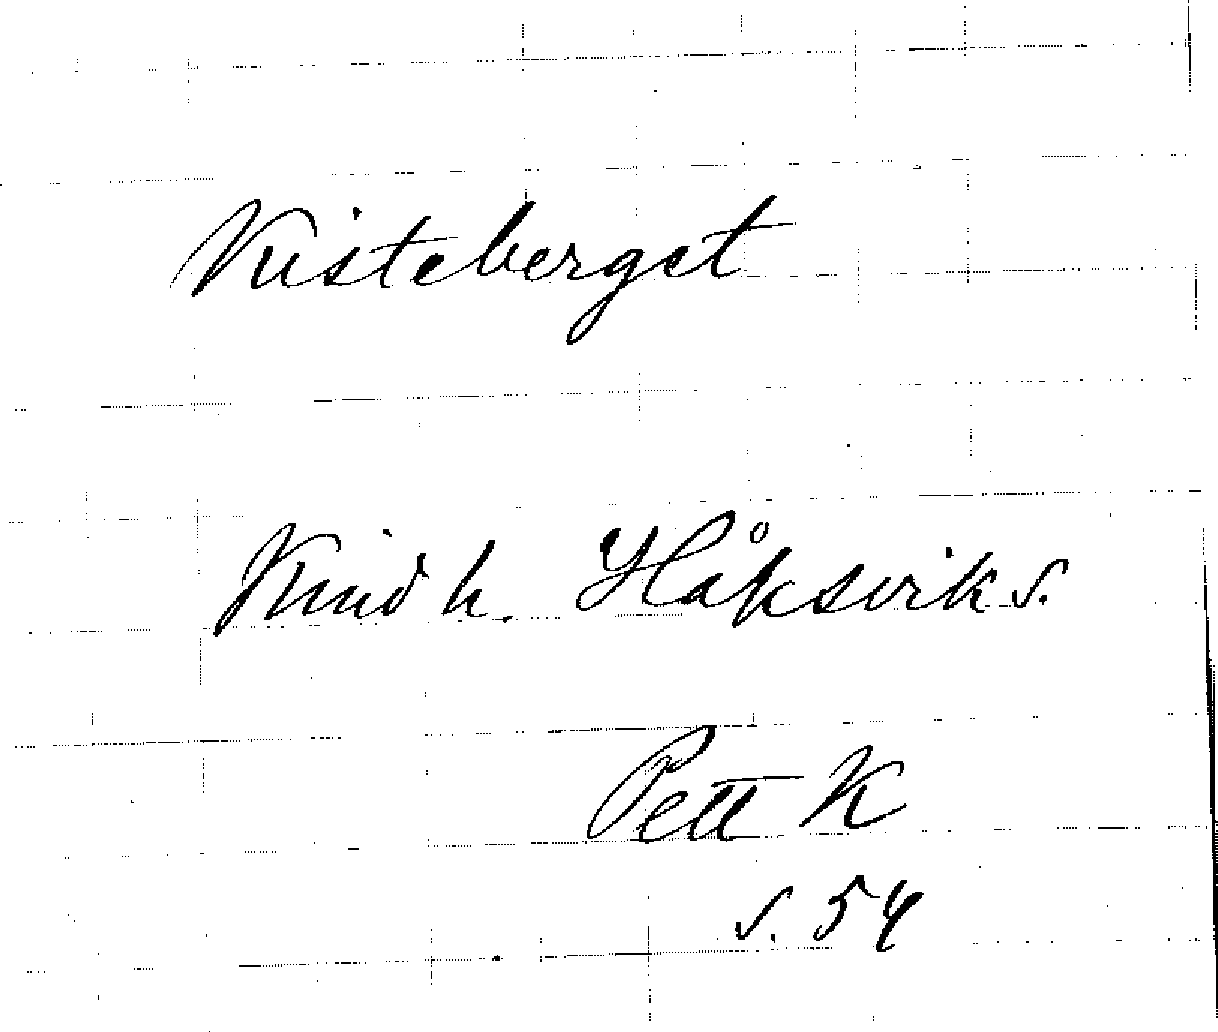 Kisteberget
Kind h. Håksvik s.
Pett K
s. 54